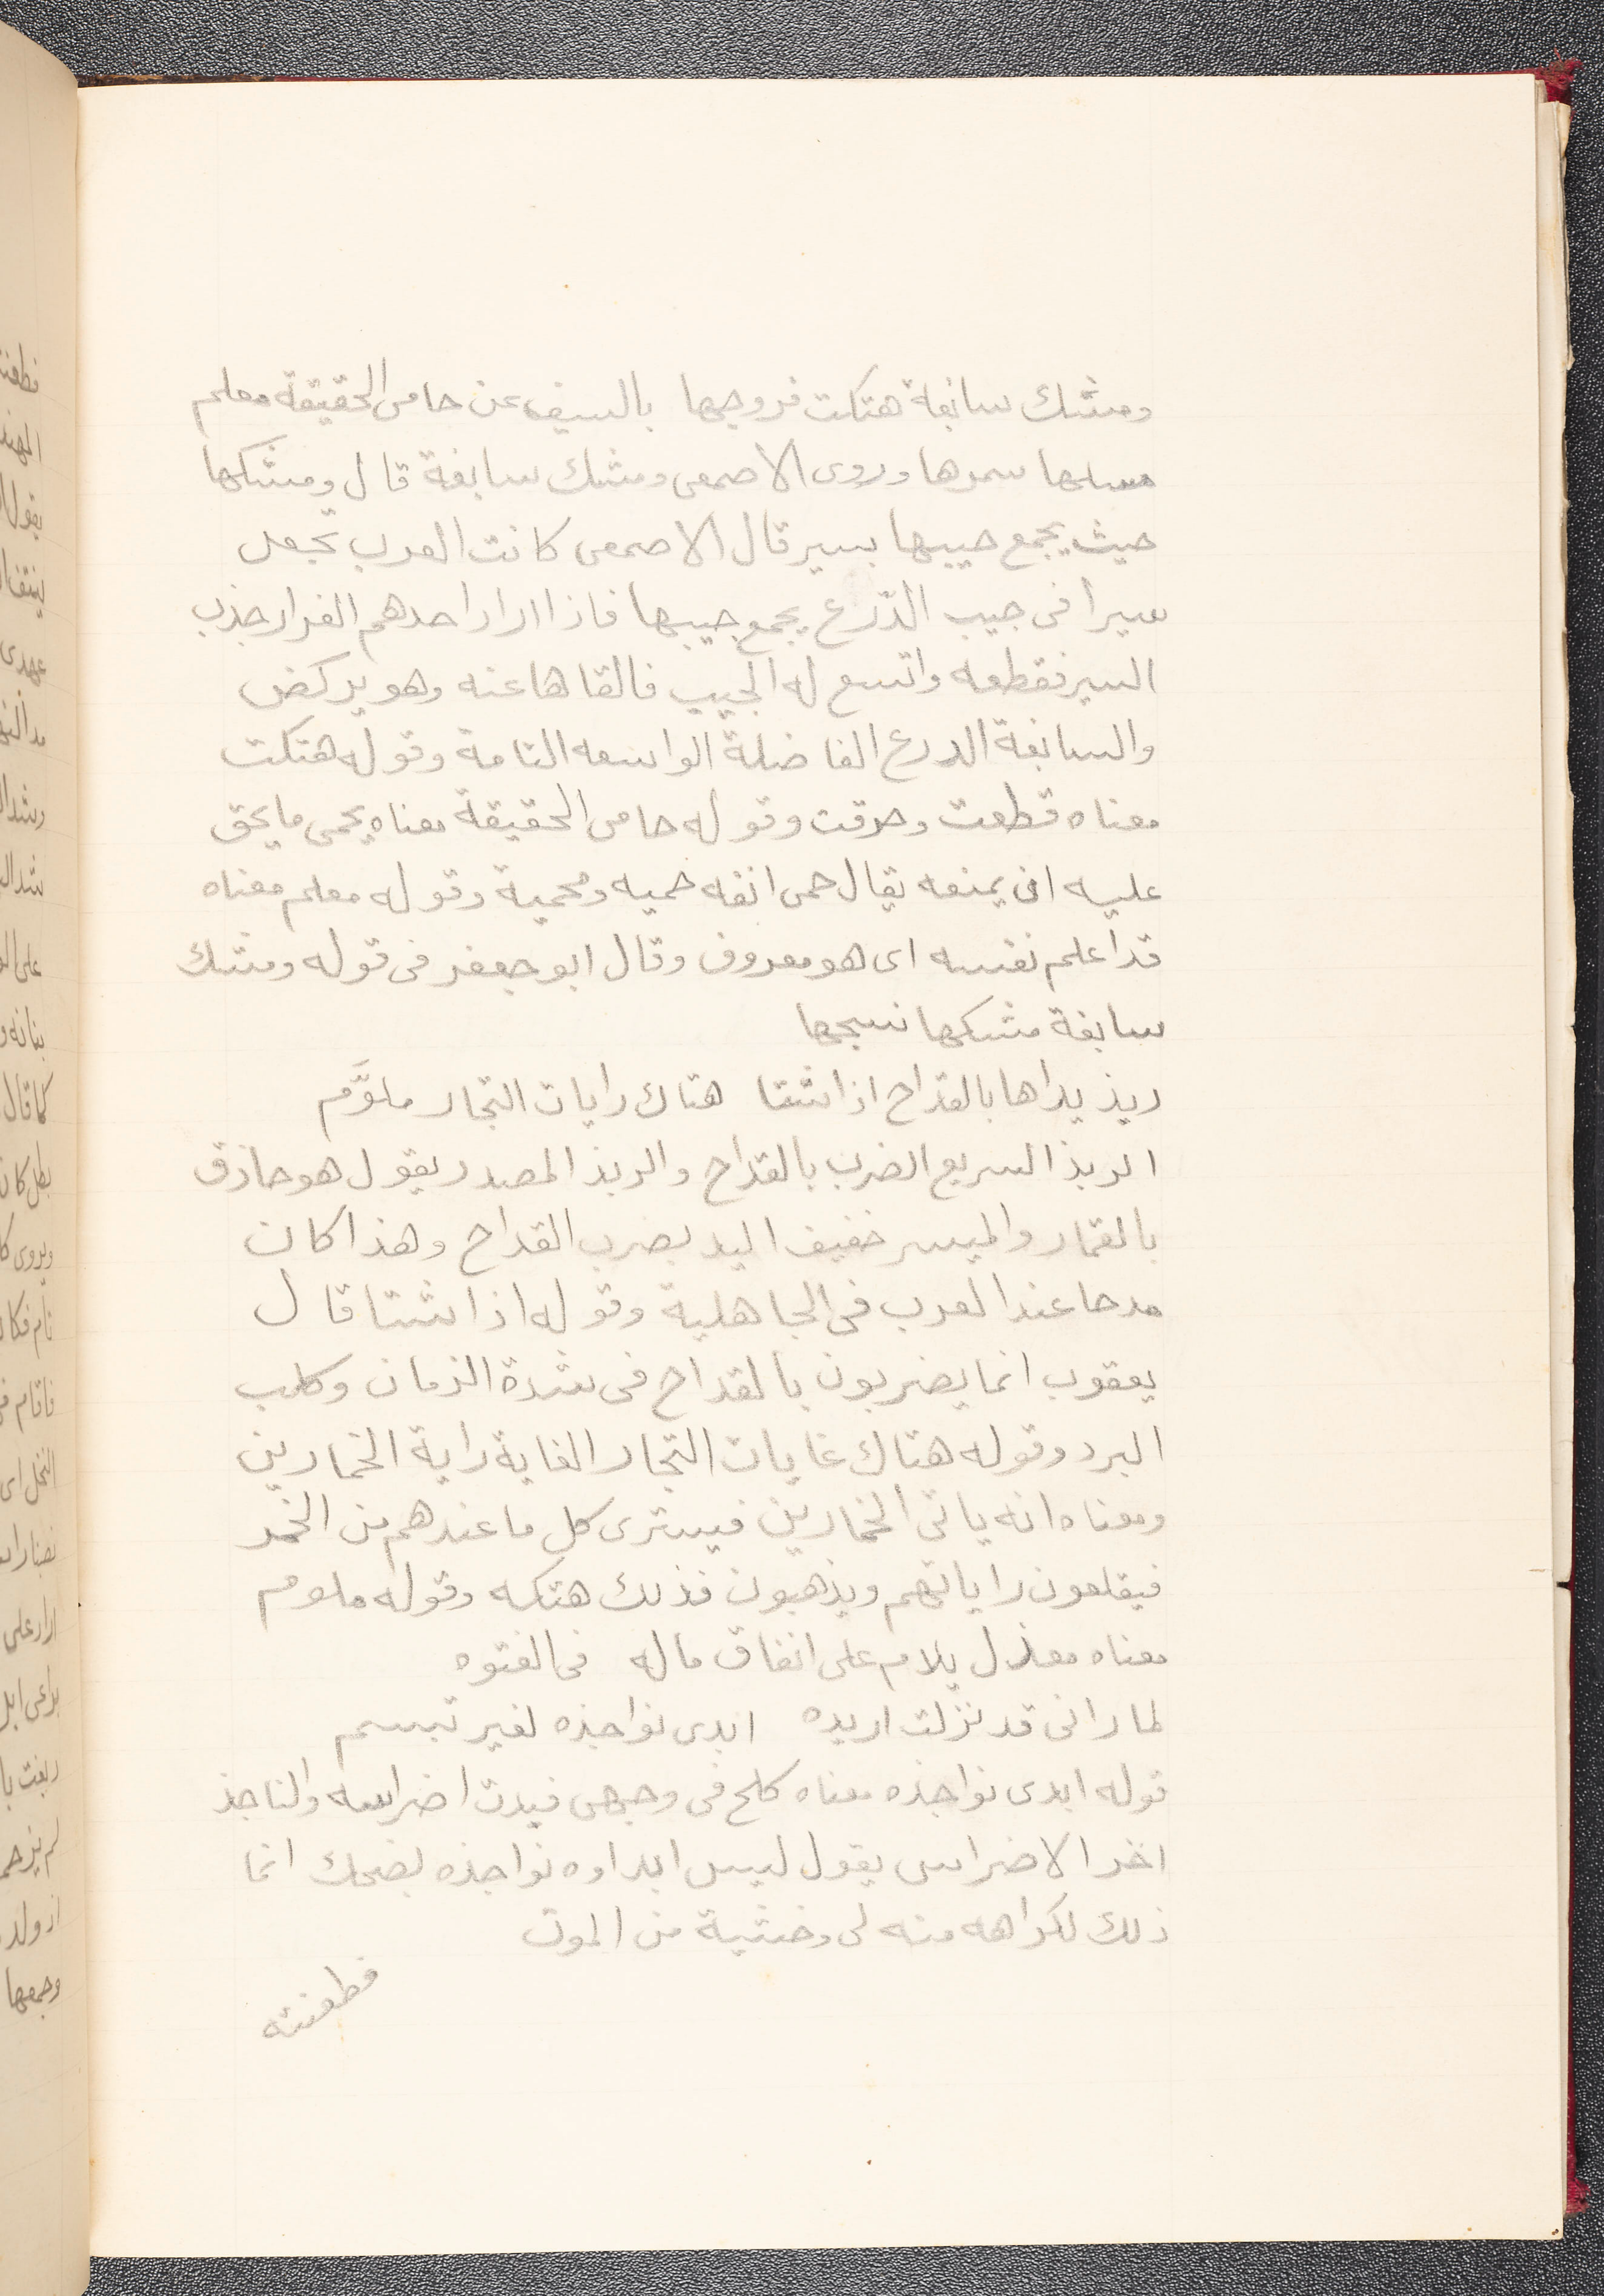 ومشك سابغة هتكت فروجها بالسيف عن حامى الحقيقة معلم
مسكها سمرها وروى الاصمعى ومشك سابغة قال ومشكها
حيث يجمع جيبها بسير قال الاصمعى كانت العرب تجعل
سيرا فى جيب الدّرع يجمع جيبها فاذا اراد احدهم الفرار جذب
السير فقطعه واتسع له الجيب فالقاها عنه وهو يركض
والسابغة الدرع الفاضلة الواسعه التامة وقوله هتكت
معناه قطعت وخرقت وقوله حامى الحقيقة معناه يحمى ما يحق
عليه ان يمنعه يقال حمى انفه حميه ومحمية وقوله معلم معناه
قد اعلم نفسه اى هو معروف وقال ابو جعفر فى قوله ومشك
سابغة مشكها نسجها
ربذ يداها بالقداح اذا شتا هتاك رايات التجار ملوَّم
الربذ السريع الضرب بالقداح والربذ المصدر يقول هو حاذق
بالقمار والميسر خفيف اليد بضرب القداح وهذا كان
مدحا عند العرب فى الجاهلية وقوله اذا شتا قال
يعقوب انما يضربون بالقداح فى شدة الزمان وكلب
البرد وقوله هتاك غايات التجار الغاية راية الخمارين
ومعناه انه ياتى الخمارين فيشترى كل ما عندهم من الخمر
فيقلعون راياتهم ويذهبون فذلك هتكه وقوله ملوم
معناه معذل يلام على انفاق ماله فى الفتوه
لما رانى قد نزلت اريده ابدى نواجذه لغير تبسم
قوله ابدى نواجذه معناه كلح فى وجهى فبدت اضراسه والناجذ
اخر الاضراس يقول ليس ابداوه نواجذه بضحك انما
ذلك لكراهه منه لى وخشية من الموت
فطعنته